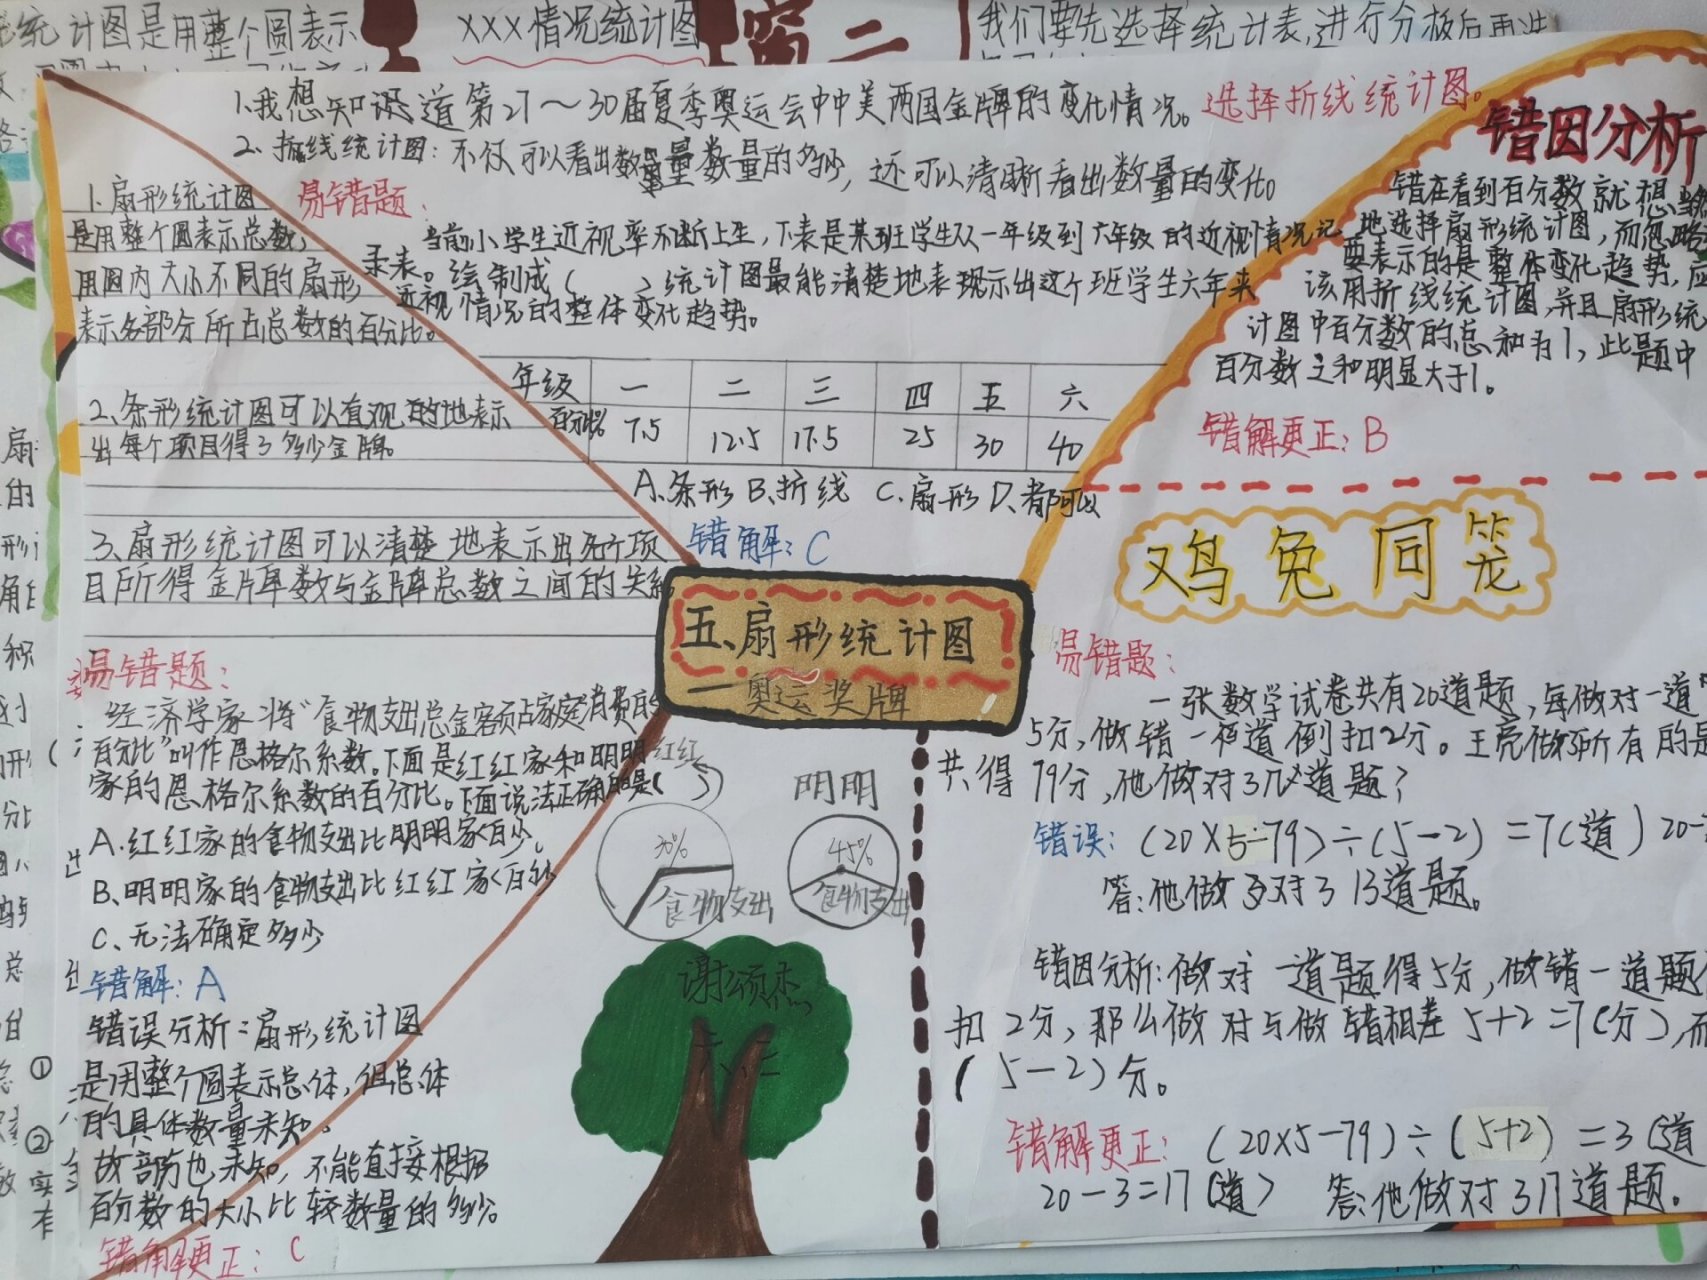 统计图是用整个圆表示
XXX情况统计图
窗二
我们要先选择统计表,进行分析后再选
1.我想知道第27～30届夏季奥运会中中美两国金牌的变化情况。选择折线统计图。
2.折线统计图：不仅可以看出数量数量的多少，还可以清晰看出数量的变化。
1.扇形统计图
是用整个圆表示总数，
用圆内大小不同的扇形
表示各部分所占总数的百分比。
2、条形统计图可以直观的地表示
出每个项目得了多少金牌。
3、扇形统计图可以清楚地表示出各个项
目所得金牌数与金牌总数之间的关系
易错题：
当前小学生近视率不断上生，下表是某班学生从一年级到六年级的近视情况记
录表。绘制成（ ）统计图最能清楚地表现示出这个班学生六年来
近视情况的整体变化趋势。
年级 一 二 三 四 五 六
百分比% 7.5 12.5 17.5 25 30 40
A、条形 B、折线 C.扇形 D、都可以
错解：C
错因分析
错在看到百分数就想当然
地选择扇形统计图，而忽略
要表示的是整体变化趋势，应
该用折线统计图,并且扇形统
计图中百分数的总和为1，此题中
百分数之和明显大于1。
错解更正：B
五、扇形统计图
一奥运奖牌
易错题：
经济学家将“食物支出总金额占家庭消费的
百分比”叫作恩格尔系数。下面是红红家和明明
家的恩格尔系数的百分比。下面说法正确的是（ ）
A.红红家的食物支出比明明家的少。
B、明明家的食物支出比红红家的少
C、无法确定多少
红红
30%
食物支出
明明
45%
食物支出
错解：A
错误分析：扇形统计图
是用整个圆表示总体，但总体
的具体数量未知。
故部分也未知，不能直接根据
百分数的大小比较数量的多少。
错解更正：C
谢颂杰
六、三
鸡兔同笼
易错题：
一张数学试卷共有20道题，每做对一道
5分，做错一道倒扣2分。王亮做了所有的题
共得79分，他做对了几道题？
错误：(20×5-79)÷(5-2)=7(道) 20-
答：他做对了13道题。
错因分析：做对一道题得5分，做错一道题
扣2分，那么做对与做错相差5+2=7(分),而
(5-2)分。
错解更正：(20×5-79)÷(5+2)=3(道
20-3=17(道) 答：他做对了17道题。